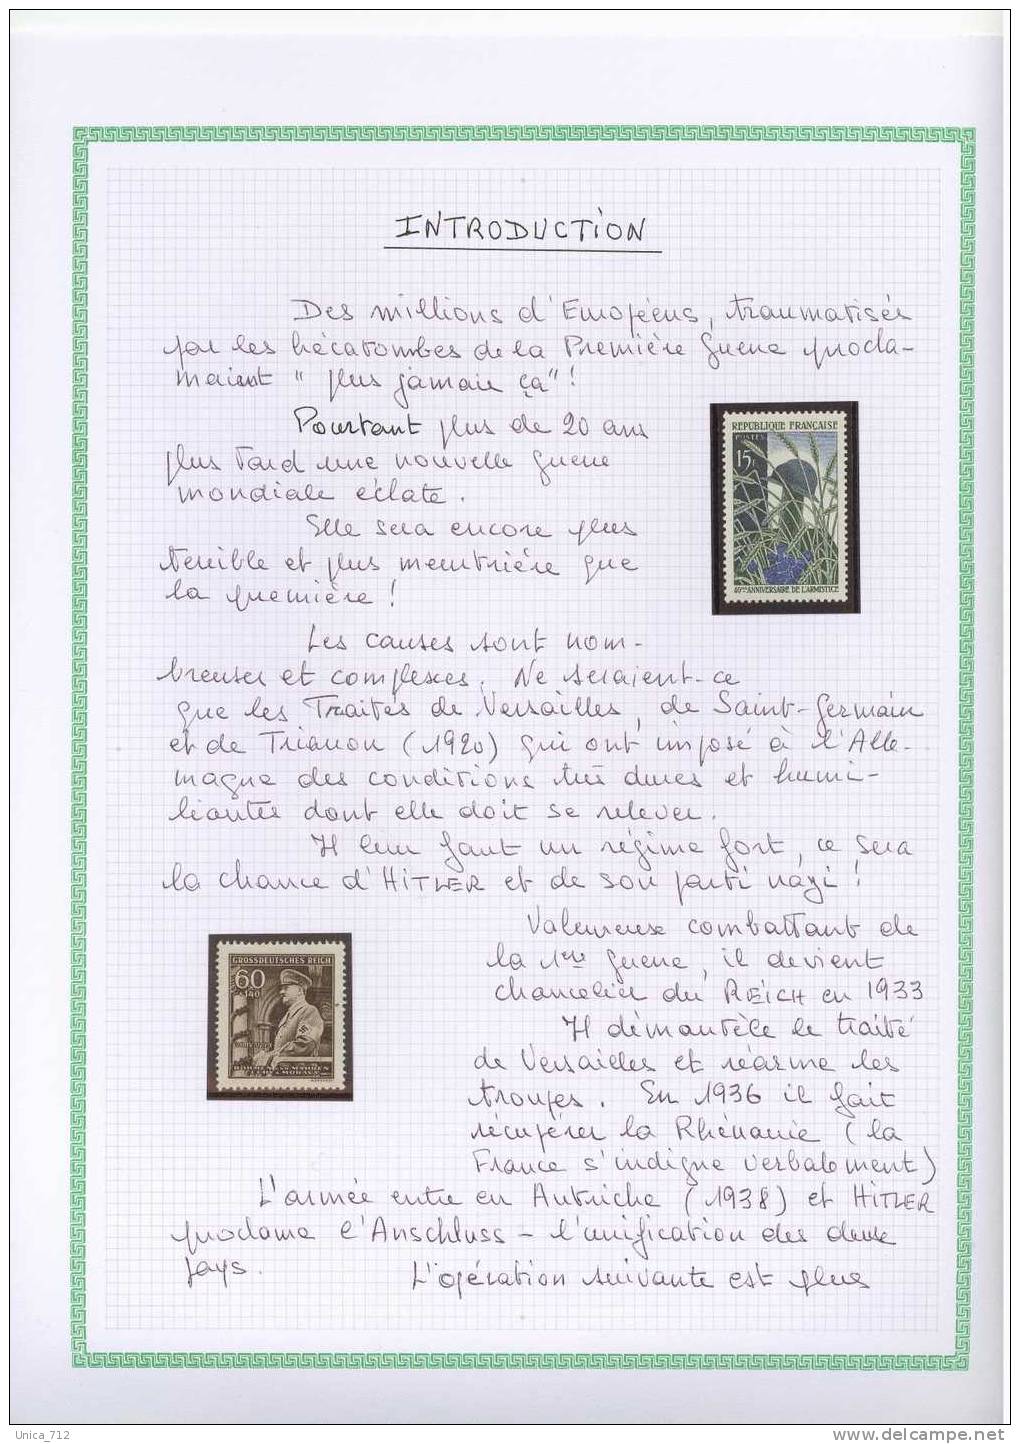 INTRODUCTION
Des millions d'Européens, traumatisés
par les hécatombes de la Première guerre procla-
maient "plus jamais ça"!
Pourtant plus de 20 ans
plus tard une nouvelle guerre
mondiale éclate.
REPUBLIQUE FRANÇAISE
POSTES
15F
40ème ANNIVERSAIRE DE L'ARMISTICE
Elle sera encore plus
terrible et plus meurtrière que
la première!
Les causes sont nom-
breuses et complexes. Ne seraient-ce
que les Traités de Versailles, de Saint-Germain
et de Trianon (1920) qui ont imposé à l'Alle-
magne des conditions très dures et humi-
liantes dont elle doit se relever.
Il leur faut un régime fort, ce sera
la chance d'HITLER et de son parti nazi!
GROSSDEUTSCHES REICH
60
+140
BÖHMEN UND MÄHREN
ČECHY A MORAVA
Valeureux combattant de
la 1ère guerre, il devient
chancelier du REICH en 1933
Il démantèle le traité
de Versailles et réarme les
troupes. En 1936 il fait
récupérer la Rhénanie (la
France s'indigne verbalement)
L'armée entre en Autriche (1938) et HITLER
proclame l'Anschluss - l'unification des deux
pays.
L'opération suivante est plus
Unica_712
www.delcampe.net